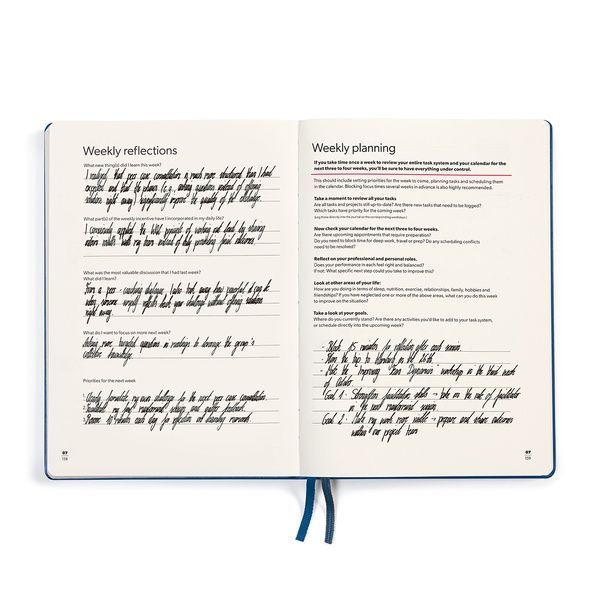 Weekly reflections
What new thing(s) did I learn this week?
I realized that peer case consultation is much more structured than I had
expected and that the phases (e.g. asking questions instead of offering
solutions right away) significantly improve the quality of the
What part(s) of the weekly incentive have I incorporated in my daily life?
I consciously applied the principle of working out loud by sharing
with my team instead of only presenting final outcomes.
What was the most valuable discussion that I had last week?
What did I learn?
From a peer-coaching dialogue, I also took away how powerful it can be
when someone simply reflects back your challenge without offering solutions
right away.
What do I want to focus on more next week?
Asking more targeted questions in meetings to leverage the group's
collective knowledge.
Priorities for the next week
· Clearly formulate my own challenge for the next peer case consultation.
· my first and gather feedback.
· Reserve minutes each day for reflection and
07
158
Weekly planning
If you take time once a week to review your entire task system and your calendar for the
next three to four weeks, you'll be sure to have everything under control.
This should include setting priorities for the week to come, planning tasks and scheduling them
in the calendar. Blocking focus times several weeks in advance is also highly recommended.
Take a moment to review all your tasks
Are all tasks and projects still up-to-date? Are there new tasks that need to be logged?
Which tasks have priority for the coming week?
Now check your calendar for the next three to four weeks.
Are there upcoming appointments that require preparation?
Do you need to block time for deep work, travel or prep? Do any scheduling conflicts
need to be resolved?
Reflect on your professional and personal roles.
Does your performance in each feel right and balanced?
If not: What specific next step could you take to improve this?
Look at other areas of your life:
How are you doing in terms of sleep, nutrition, exercise, relationships, family, hobbies and
friendships? If you have neglected one or more of the above areas, what can you do this week
to improve on the situation?
Take a look at your goals.
Where do you currently stand? Are there any activities you'd like to add to your task system,
or schedule directly into the upcoming week?
- Block 45 minutes for reflection after each session.
- Plan the trip to on the 26th.
- the "Improving Team Dynamics" workshop in the third week
of October.
- Goal 1: Strengthen facilitation skills → take on the role of facilitator
in the next session.
- Goal 2: Make my work more visible → prepare and share outcomes
within our project team.
07
159